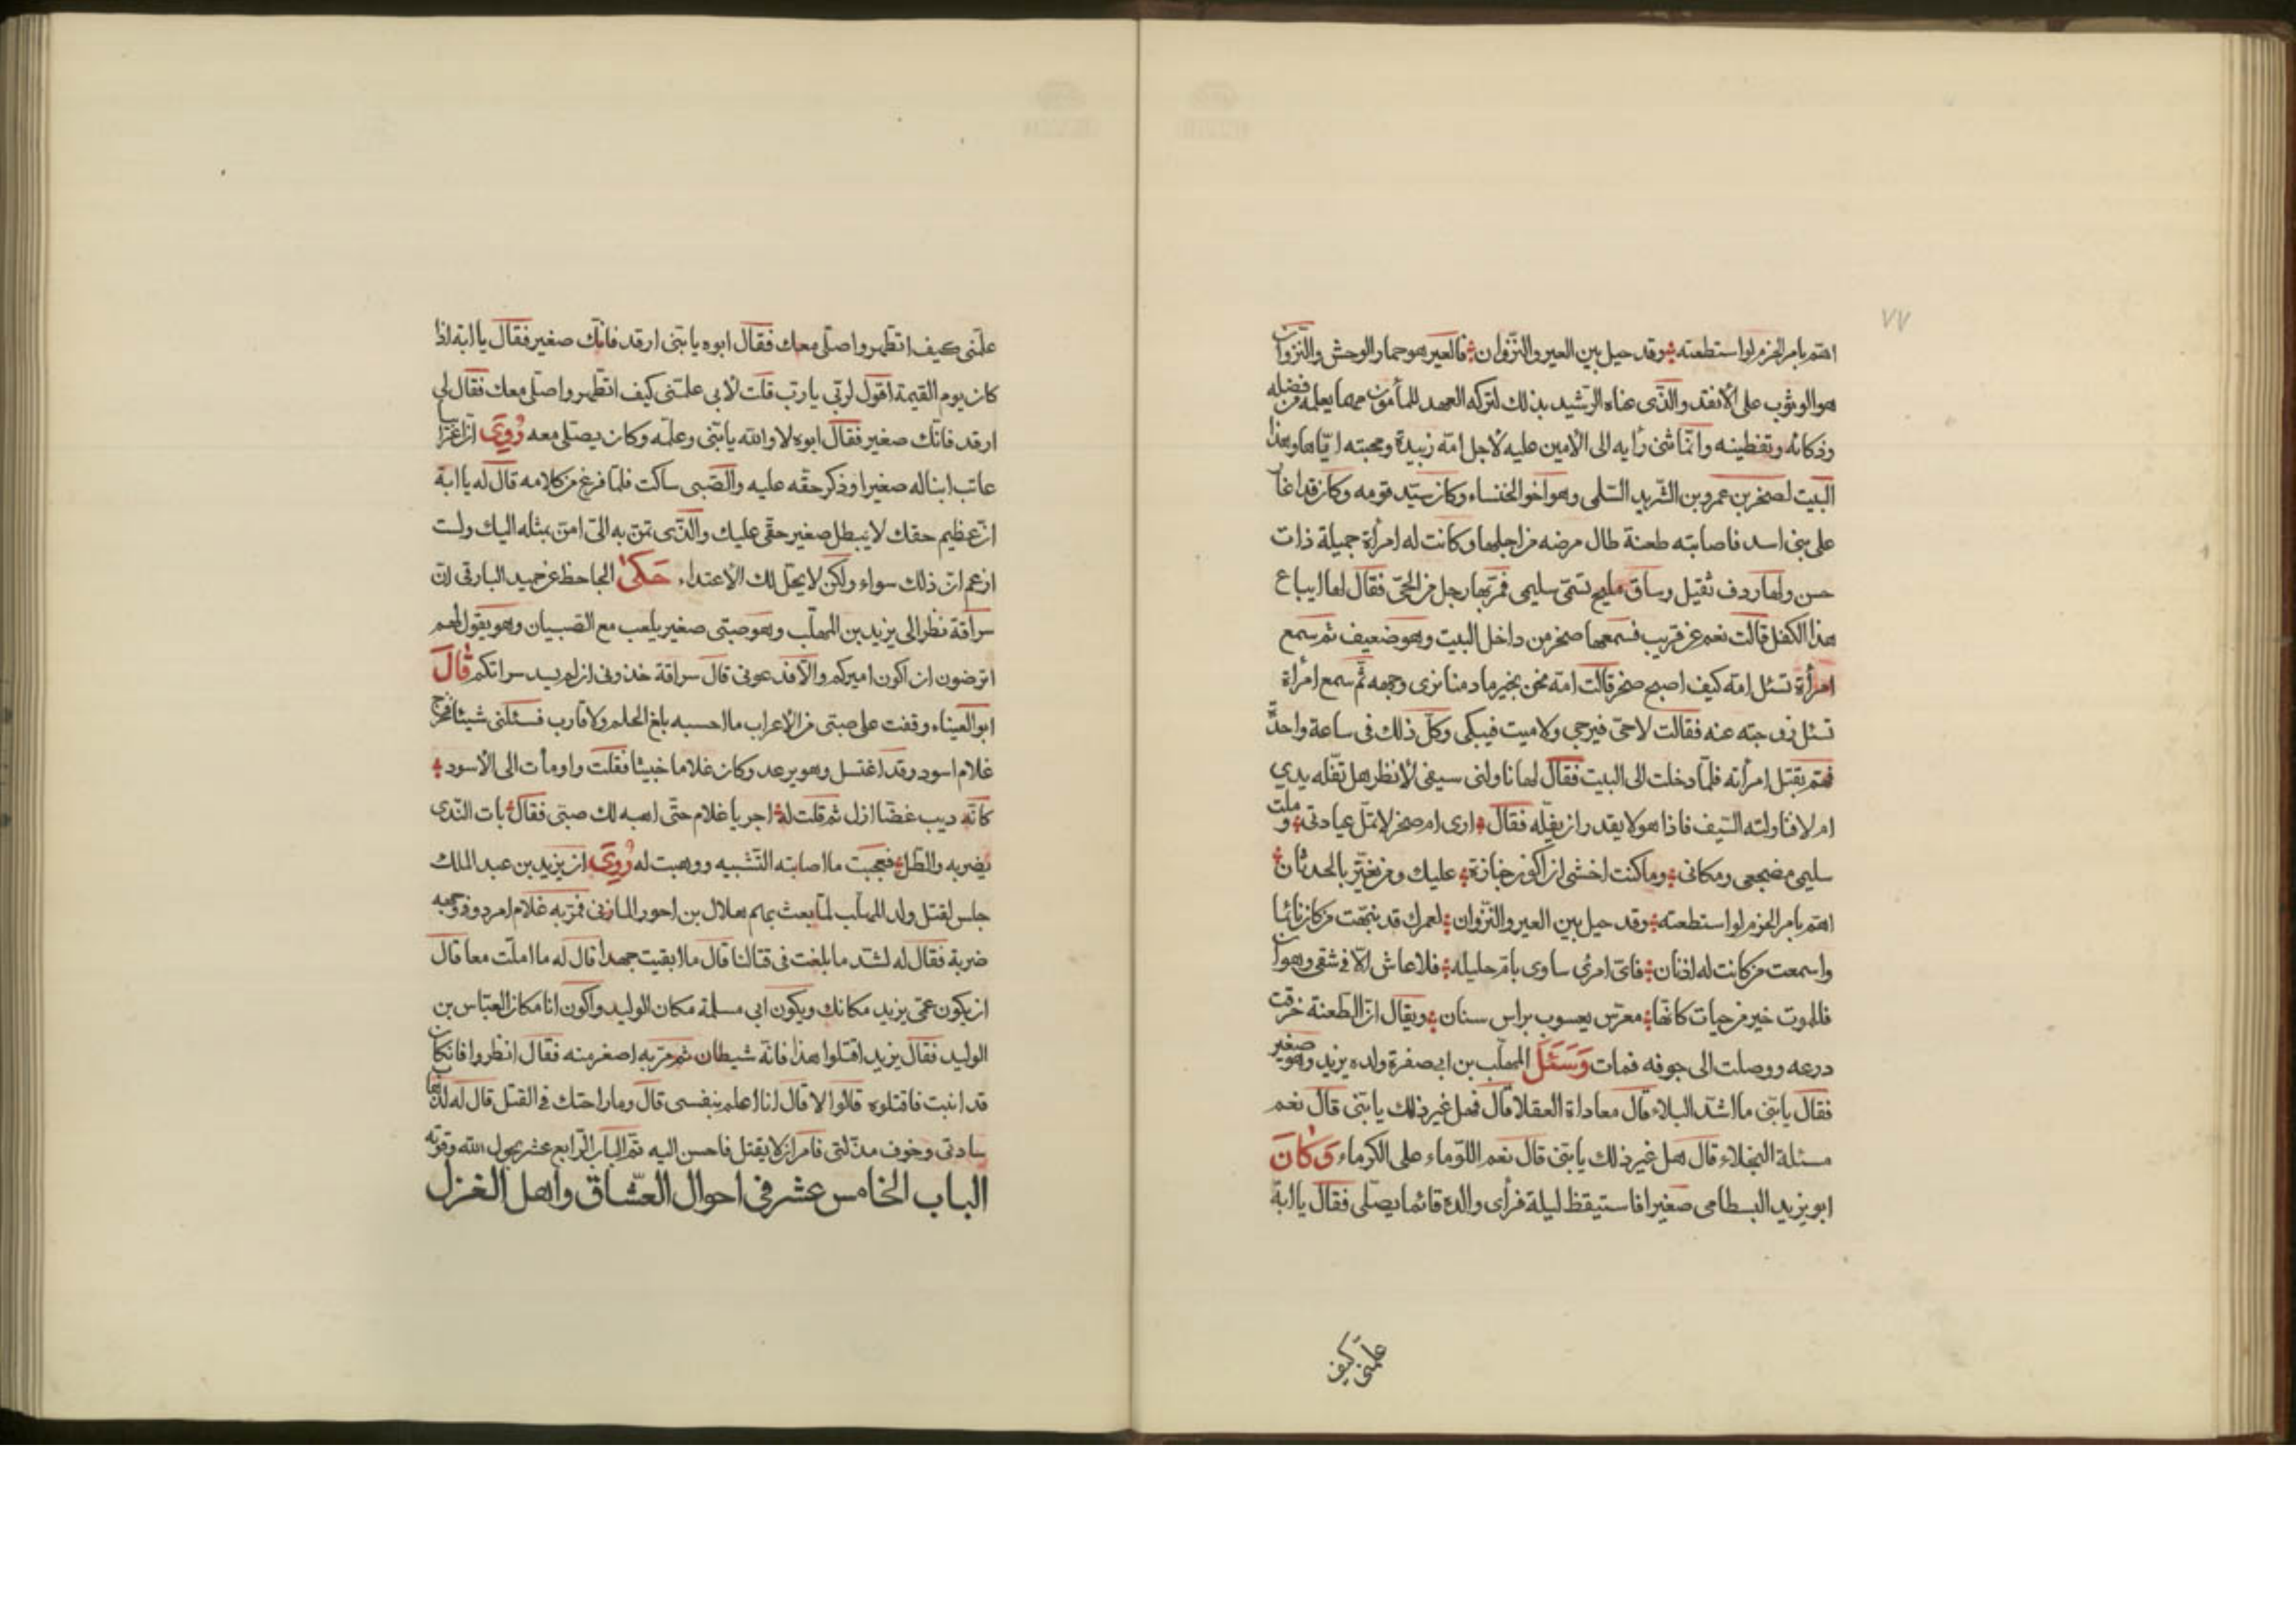 ٧٧
اهتم بامر الحزم لو استطعته وقد حيل بين العير والنزوان فالعير هو حمار الوحش والنزوان
هو الوثوب على الانفد والذى عناه الرشيد بذلك لتركه العهد للمأمون مما يعلمه من فضله
وذكائه وتفطينه وانما ثنى رأيه الى الامين عليه لاجل امه زبيدة ومحبته اياها وهذا
البيت لصخر بن عمرو بن الشريد السلمى وهو اخو الخنساء وكان سيد قومه وكان قد اغار
على بنى اسد فاصابته طعنة طال مرضه من اجلها وكانت له امرأة جميلة ذات
حسن ولها ردف ثقيل وساق مليح تسمى سليمى فمر بها رجل من الحى فقال لها ايباع
هذا الكفل قالت نعم عن قريب فسمعها صخر من داخل البيت وهو ضعيف ثم سمع
امرأة تسئل امه كيف اصبح صخر قالت امه نحن بخير ما دمنا نرى وجهه ثم سمع امرأة
تسئل زوجته عنه فقالت لا حى فيرجى ولا ميت فيبكى وكل ذلك فى ساعة واحدة
فهم بقتل امرأته فلما دخلت الى البيت فقال لها ناولنى سيفى لانظر هل تقله يدي
ام لا فناولته السيف فاذا هو لا يقدر ان يقله فقال ارى ام صخر لا تمل عيادتى وملت
سليمى مضجعى ومكانى وما كنت اخشى ان اكون جنازة عليك ومن يغتر بالحدثان
اهتم بامر الحزم لو استطعته وقد حيل بين العير والنزوان لعمرك قد نبهت من كان نائما
واسمعت من كانت له اذنان فاى امرئ ساوى بام حليلة فلا عاش الا فى شقى وهوان
فللموت خير من حيات كانها معرس يعسوب براس سنان ويقال ان الطعنة خرقت
درعه ووصلت الى جوفه فمات وَسَئَلَ المهلب بن ابى صفرة ولده يزيد وهو صغير
فقال يا بنى ما اشد البلاء قال معاداة العقلا قال فهل غير ذلك يا بنى قال نعم
مسئلة البخلاء قال هل غير ذلك يا بنى قال نعم اللؤماء على الكرماء وَكَانَ
ابو يزيد البسطامى صغيرا فاستيقظ ليلة فرأى والده قائما يصلى فقال يا ابة
علمنى كيف
علمنى كيف اتطهر واصلى معك فقال ابوه يا بنى ارقد فانك صغير فقال يا ابة اذا
كان يوم القيمة اقول لربى يا رب قلت لابى علمنى كيف اتطهر واصلى معك فقال لى
ارقد فانك صغير فقال ابوه لا والله يا بنى وعلمه وكان يصلى معه رُوِىَ ان اعرابيا
عاتب ابنا له صغيرا وذكر حقه عليه والصبى ساكت فلما فرغ من كلامه قال له يا ابة
ان عظيم حقك لا يبطل صغير حقى عليك والذى تمن به الى امن بمثله اليك ولست
ازعم ان ذلك سواء ولكن لا يحل لك الاعتداء حَكى الجاحظ عن حميد البارقى ان
سراقة نظر الى يزيد بن المهلب وهو صبى صغير يلعب مع الصبيان وهو يقول لهم
اترضون ان اكون اميركم والا فدعونى قال سراقة خذونى ان لم يسد سراتكم قَالَ
ابو العيناء وقفت على صبى من الاعراب ما احسبه بلغ الحلم ولا قارب فسئلنى شيئا فخرج
غلام اسود وقد اغتسل وهو يرعد وكان غلاما خبيثا فقلت واومأت الى الاسود
كانه ديب غضا ازل ثم قلت له اجر يا غلام حتى اهبه لك صبى فقال بات الندى
يضربه والطل فعجبت ما اصابته التشبيه ووهبت له رُوِىَ ان يزيد بن عبد الملك
جلس لقتل ولد المهلب لما بعث بهم هلال بن احور المازنى فمر به غلام امرد وفى وجهه
ضربة فقال له لشد ما بلغت فى قتالنا قال ما ابقيت جهدا قال له ما املت معا قال
ان يكون عمى يزيد مكانك ويكون ابى مسلمة مكان الوليد واكون انا مكان العباس بن
الوليد فقال يزيد اقتلوا هذا فانه شيطان ثم مر به اصغر منه فقال انظروا فان كان
قد انبت فاقتلوه قالوا لا قال انا اعلم بنفسى قال وما راحتك فى القتل قال له لذهاب
سادتى وخوف مذلتى فامر ان لا يقتل فاحسن اليه تم الباب الرابع عشر بحول الله وقوته
الباب الخامس عشر فى احوال العشاق واهل الغزل